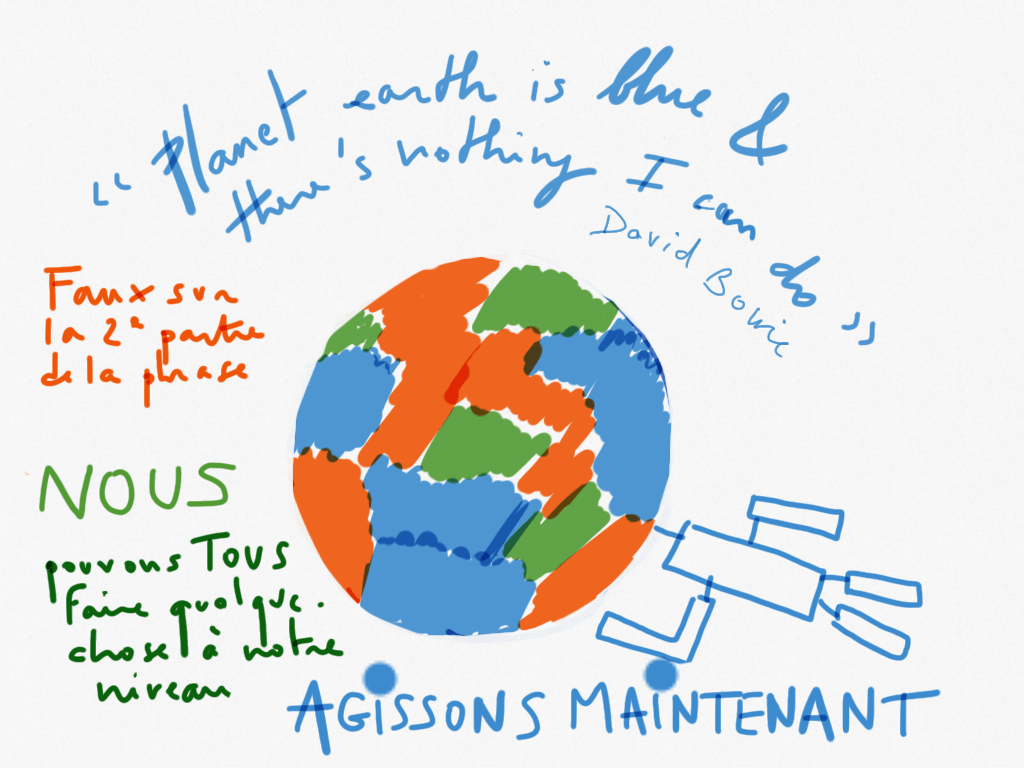 “ Planet earth is blue &
there's nothing I can do ”
David Bowie
Faux sur
la 2e partie
de la phrase
NOUS
pouvons TOUS
faire quelque.
chose à notre
niveau
AGISSONS MAINTENANT